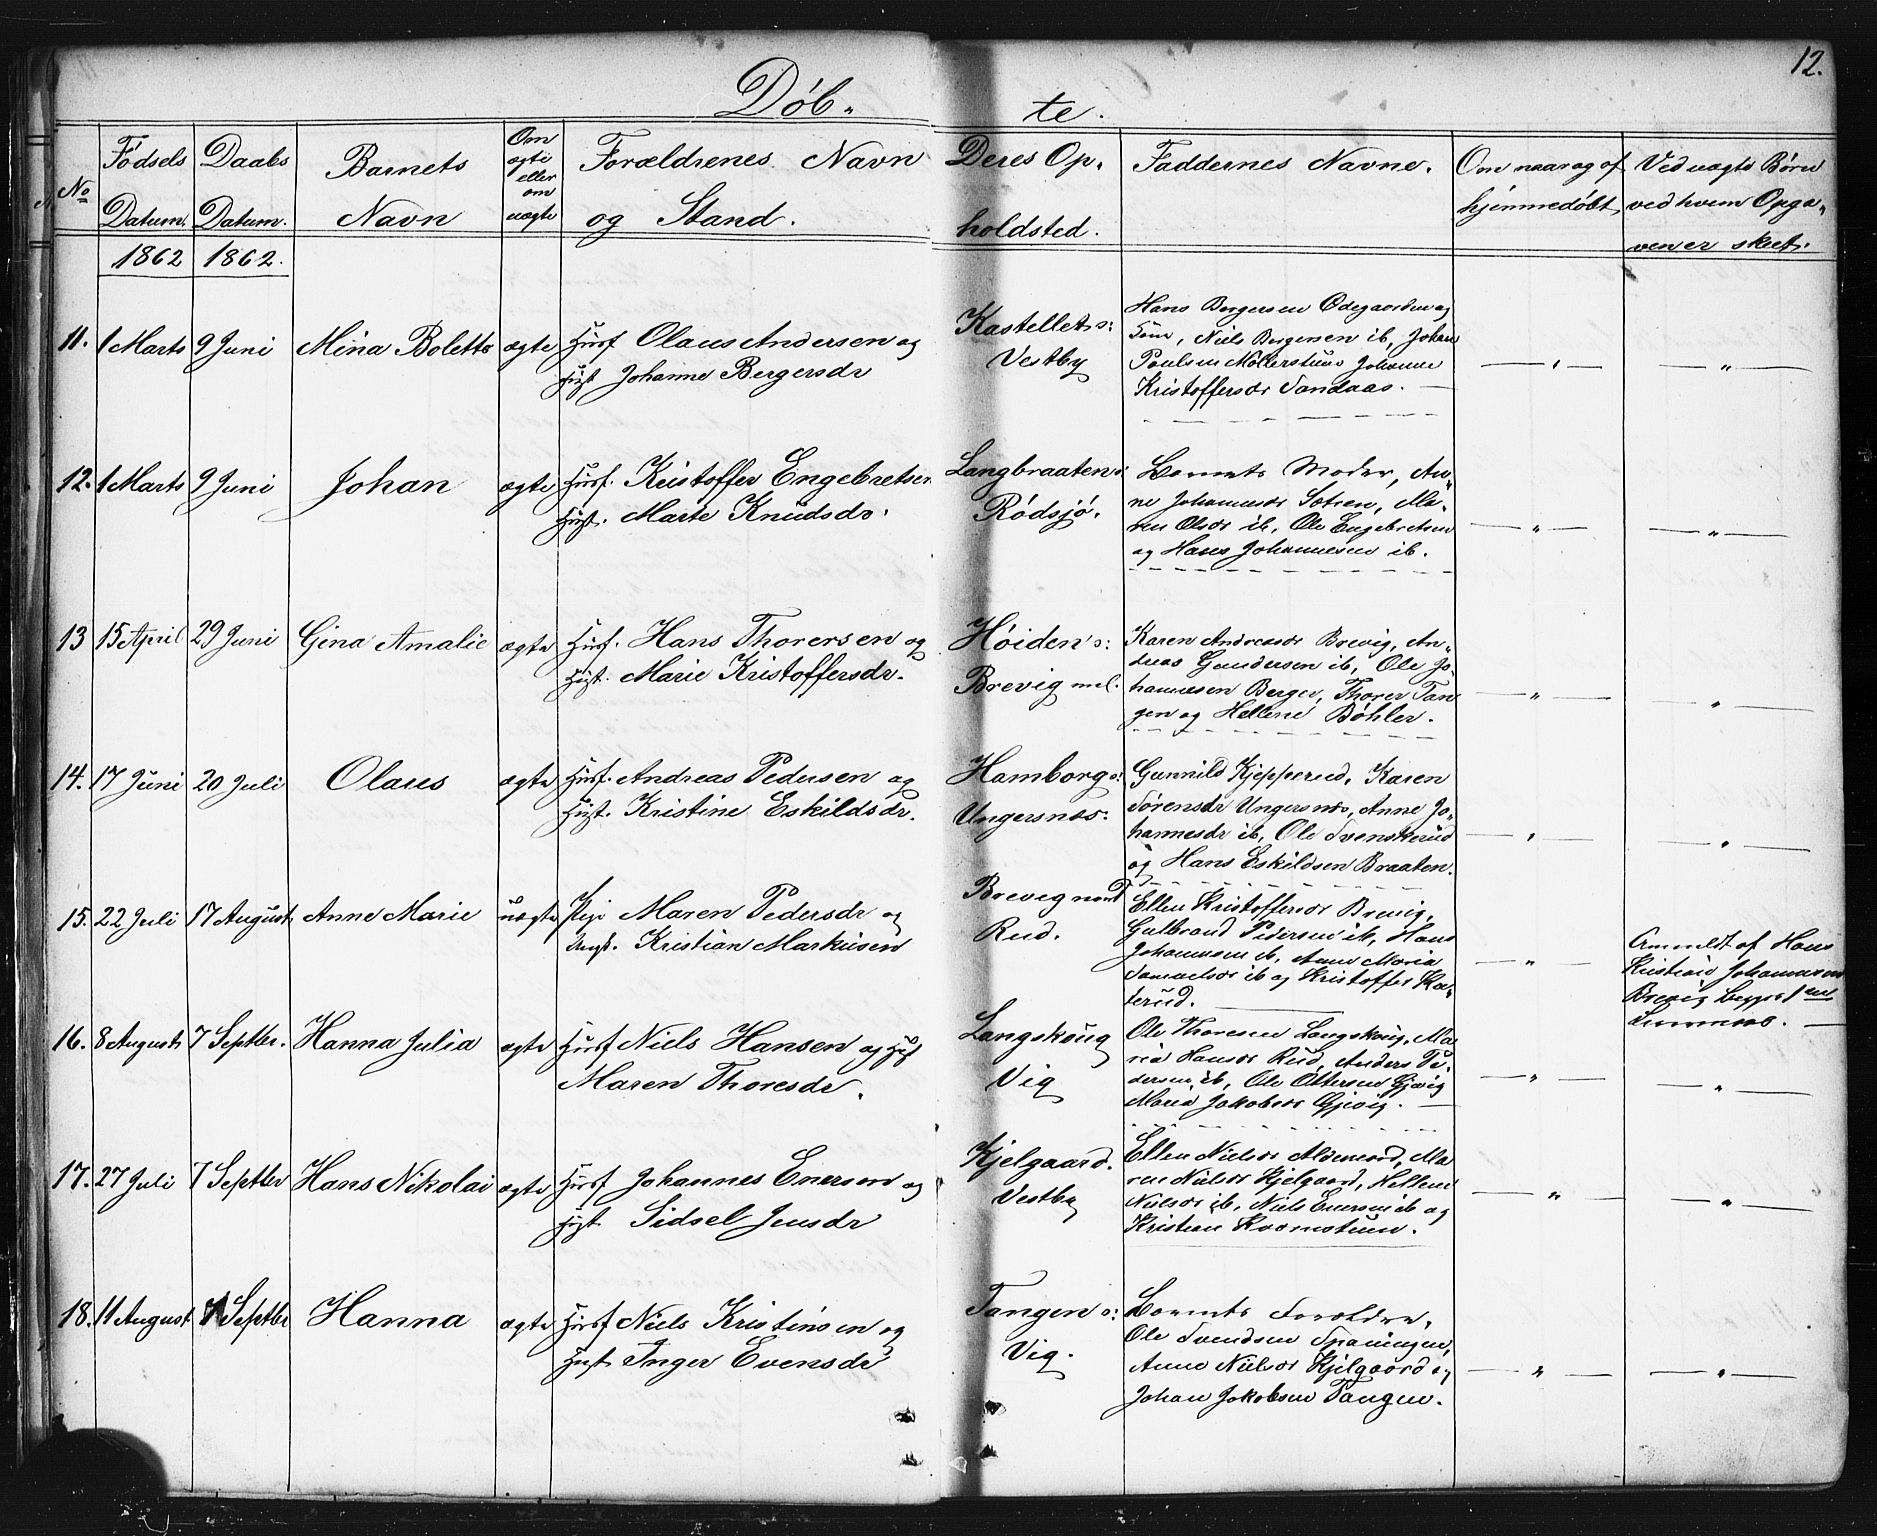 12.
Døb-
te.
No
Fødsels Datum.
Daabs Datum.
Barnets Navn
Om ægte eller om uægte
Forældrenes Navn og Stand.
Deres Op-
holdsted.
Faddernes Navne.
Om naar og af
hjemmedøbt
Ved uægte Børn
ved hvem Opga-
ven er skeet.
1862 1862.
11. 1 Marts 9 Juni Mina Bolette ægte Husf Olaus Andersen og
Hust Johanne Bergersdr
Kastellet o:
Vestby
Hans Bergersen Ødegaarden og
Niels Bergersen ib, Johan
Poulsen Johanne
Kristoffersdr Sandaas.
12. 1 Marts 9 Juni Johan ægte Husf. Kristoffer Engebretsen
Hust. Marte Knudsdr.
Langbraaten o:
Rødsjø.
Barnets Moder, An-
ne Johannesdr Sætren, Ma-
ren Olsdr ib, Ole Engebretsen
og Hans Johannesen ib.
13 15 April 29 Juni Gina Amalie ægte Husf. Hans Thorersen og
Hust. Marie Kristoffersdr.
Høiden o:
Brevig mel.
Karen Andreasdr Brevig, An-
dreas Gundersen ib, Ole Jo-
hannesen Berger, Thorer Tan
gen og Hellene Bøhler.
14. 17 Juni 20 Juli Olaus ægte Husf. Andreas Pedersen og
Hust. Kristine Eskildsdr.
Hamborg o:
Ungersnæs:
Gunnild Kjepperud, Karen
Sørensdr Ungersnæs, Anne Jo-
hannesdr ib, Ole Svenskerud
og Hans Eskildsen Braaten.
15. 22 Juli 17 August Anne Marie uægte Pige Maren Pedersdr og
Ungk. Kristian Markusen
Brevig nord
Rud.
Ellen Kristoffersdr Brevig,
Gulbrand Pedersen ib, Hans
Johannesen ib, Anne Maria
Samuelsdr ib og Kristoffer Ka-
terud.
Anmeldt af Hans
Kristian Johannesen
Brevig
16. 8 August 7 Septber. Hanna Julia ægte Husf Niels Hansen og Hust
Maren Thoresdr.
Langskoug
Vig
Ole Thoresen Langskoug, Ma
ria Hansdr Rud, Anders Pe-
dersen ib, Ole Ottersen Gjevig
Maria Jakobsdr Gjevig.
17. 27 Juli 7 Septber Hans Nikolai ægte Husf Johannes Enersen og
Hust. Sidsel Jensdr
Kjelgaard.
Vestby
Ellen Nielsdr Ma
ren Nielsdr Kjelgaard, Hellene
Nielsdr ib, Niels Enersen ib og
Kristian
18. 11 August 7 Septber Hanna ægte Husf Niels Kristensen og
Hust Inger Evensdr
Tangen o:
Vig.
Barnets Forældre,
Ole Svendsen
Anne Nielsdr Kjelgaard og
Johan Jakobsen Tangen.